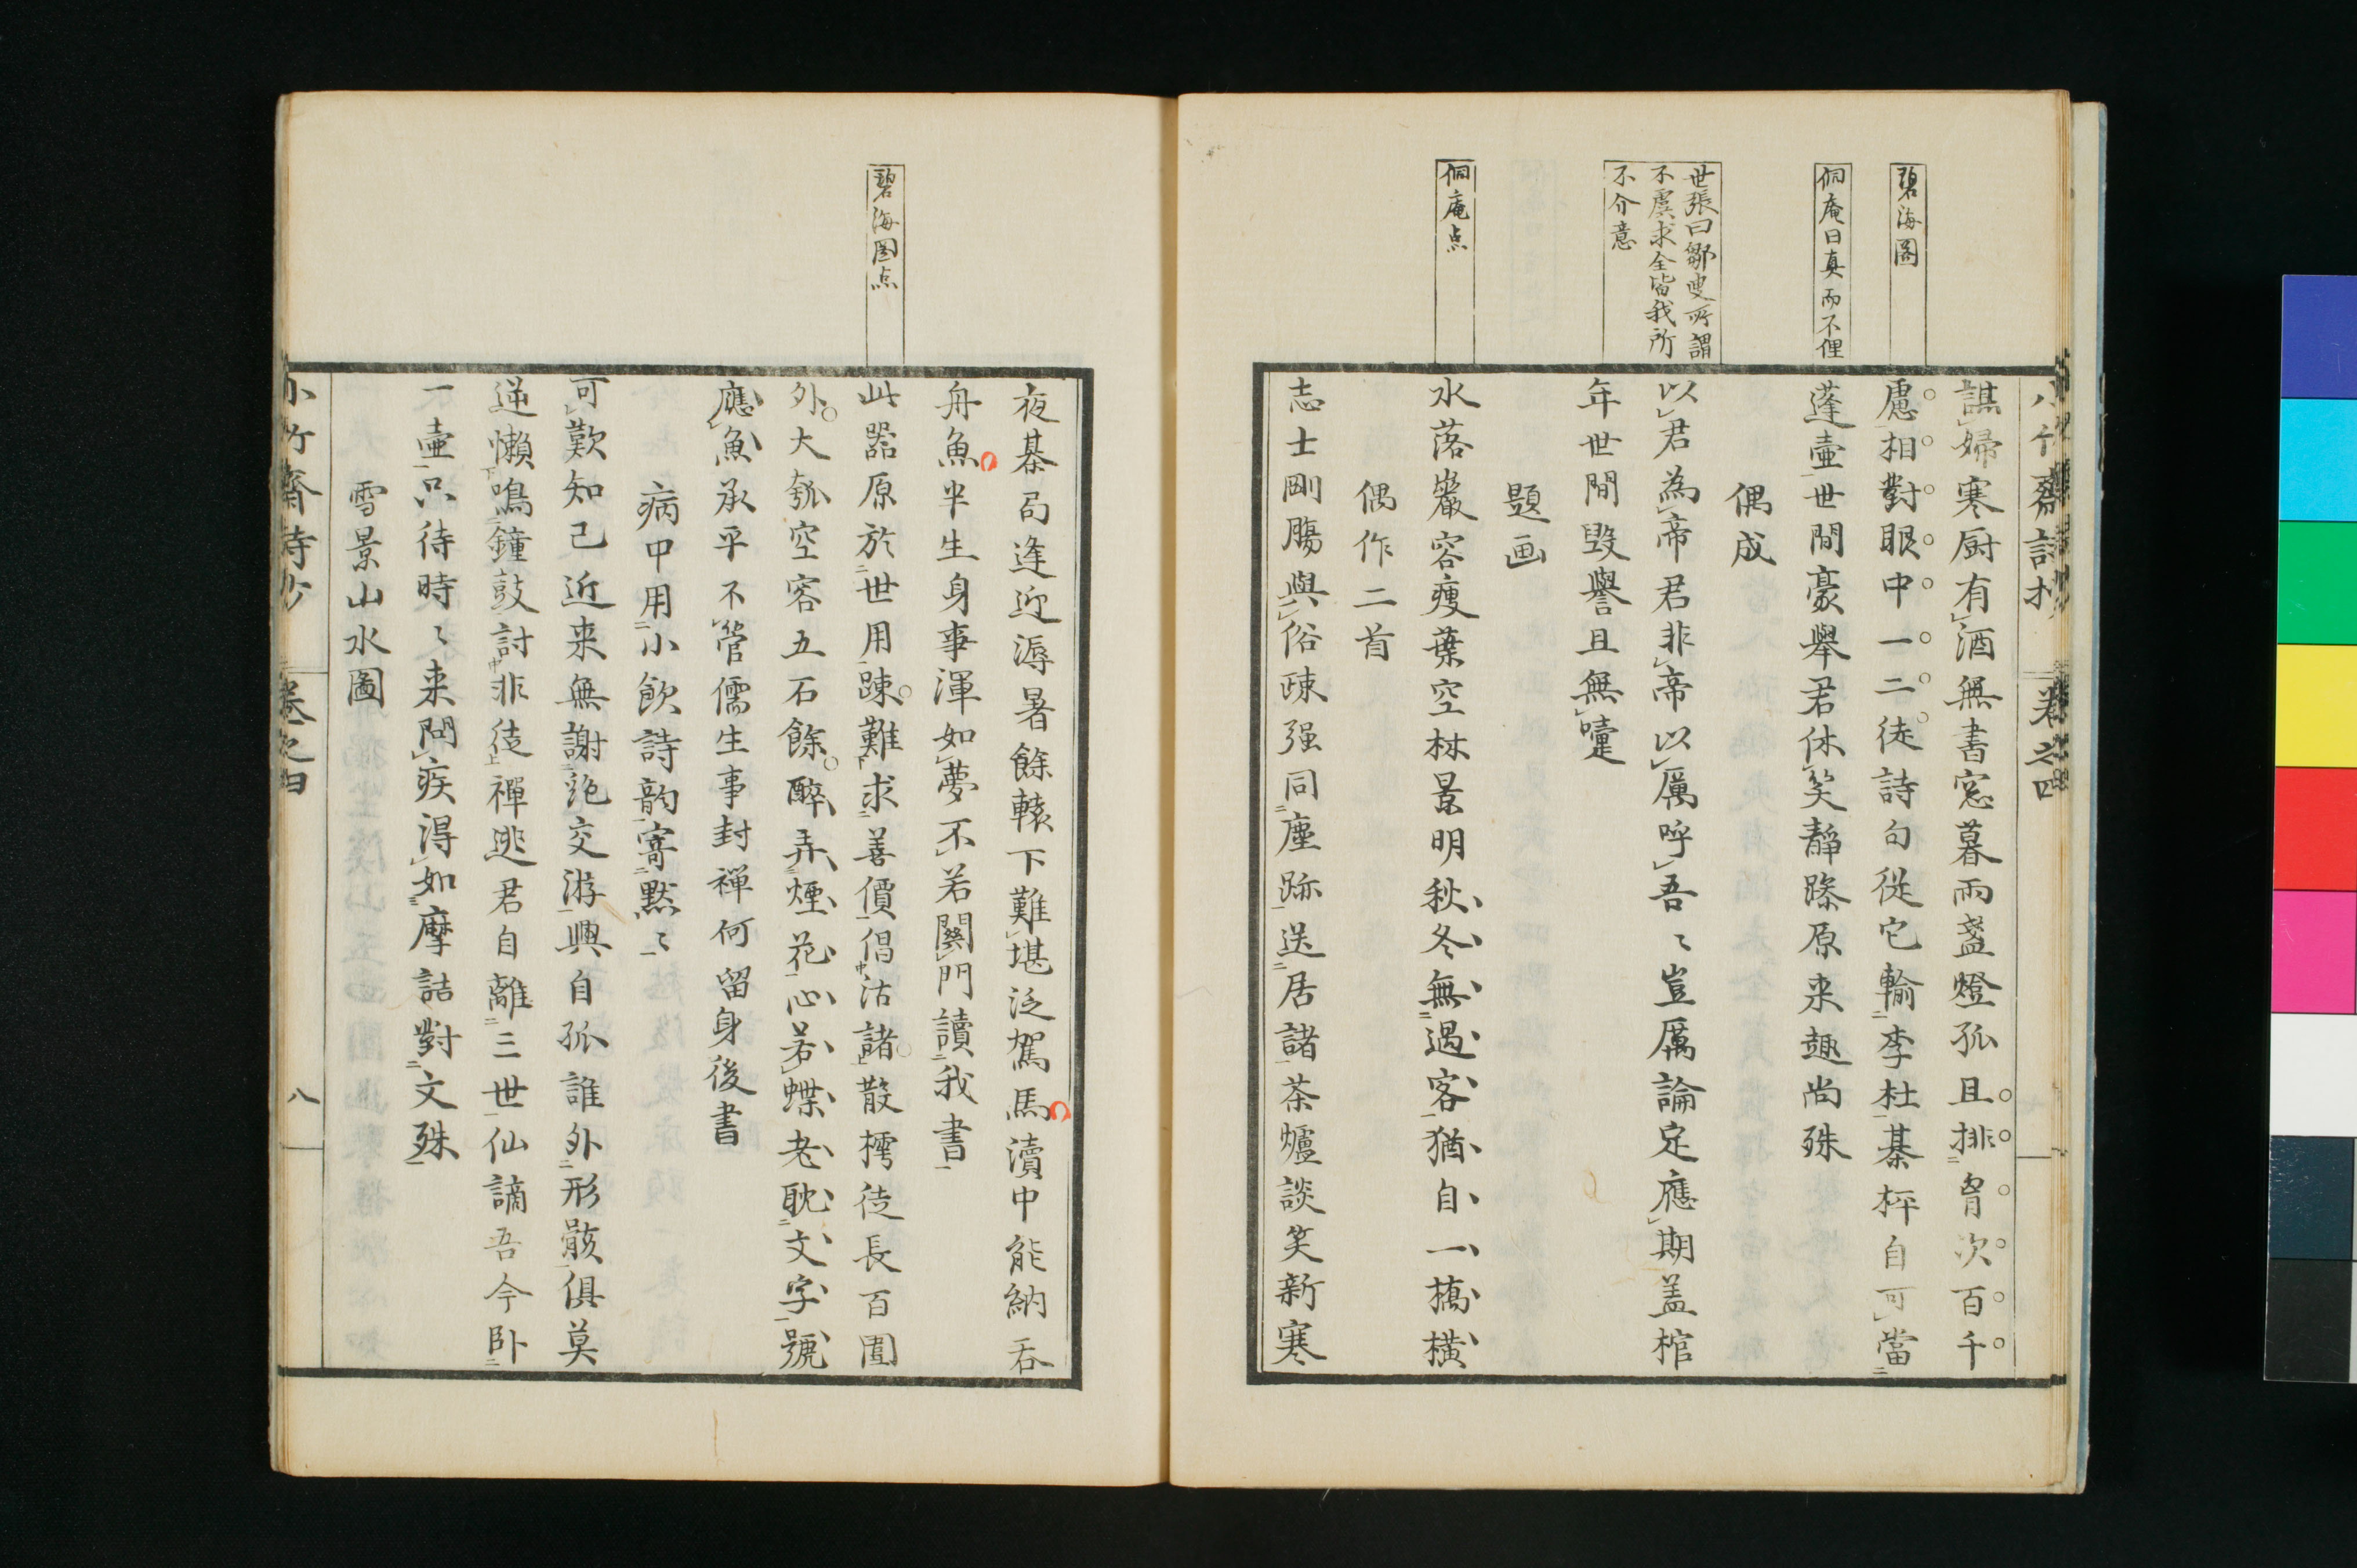 碧海圏
侗庵曰真而不俚
世張曰鄒叟所謂
不虞求全皆我所
不介意
侗庵点
小竹齋詩抄 卷之四
謀婦寒厨有酒無書窓暮雨盞燈孤且排胷次百千
慮相對眼中一二徒詩句從它輸李杜棊枰自可當
蓬壷世間豪舉君休笑靜躁原来趣尚殊
偶成
以君為帝君非帝以厲呼吾〻豈厲論定應期盖棺
年世間毀譽且無嚏
題画
水落巖容瘦葉空林景明秋冬無過客猶自一搞横
偶作二首
志士剛膓與俗疎强同塵跡送居諸茶爐談笑新寒
碧海圏点
夜棊局逢迎溽暑餘轅下難堪泛駕馬瀆中能納吞
舟魚半生身事渾如夢不若關門讀我書
此器原於世用踈難求善價倡沽諸散樗徒長百圍
外大瓠空容五石餘醉弄煙花心若蝶老耽文字號
應魚承平不管儒生事封禪何留身後書
病中用小飲詩韵寄黙〻
可歎知己近来無謝絶交游興自孤誰外形骸俱莫
逆懶鳴鐘鼓討非徒禪逃君自離三世仙謫吾今卧
一壷只待時〻来問疾得如摩詰對文殊
雪景山水圖
小竹齋詩抄 卷之四 八